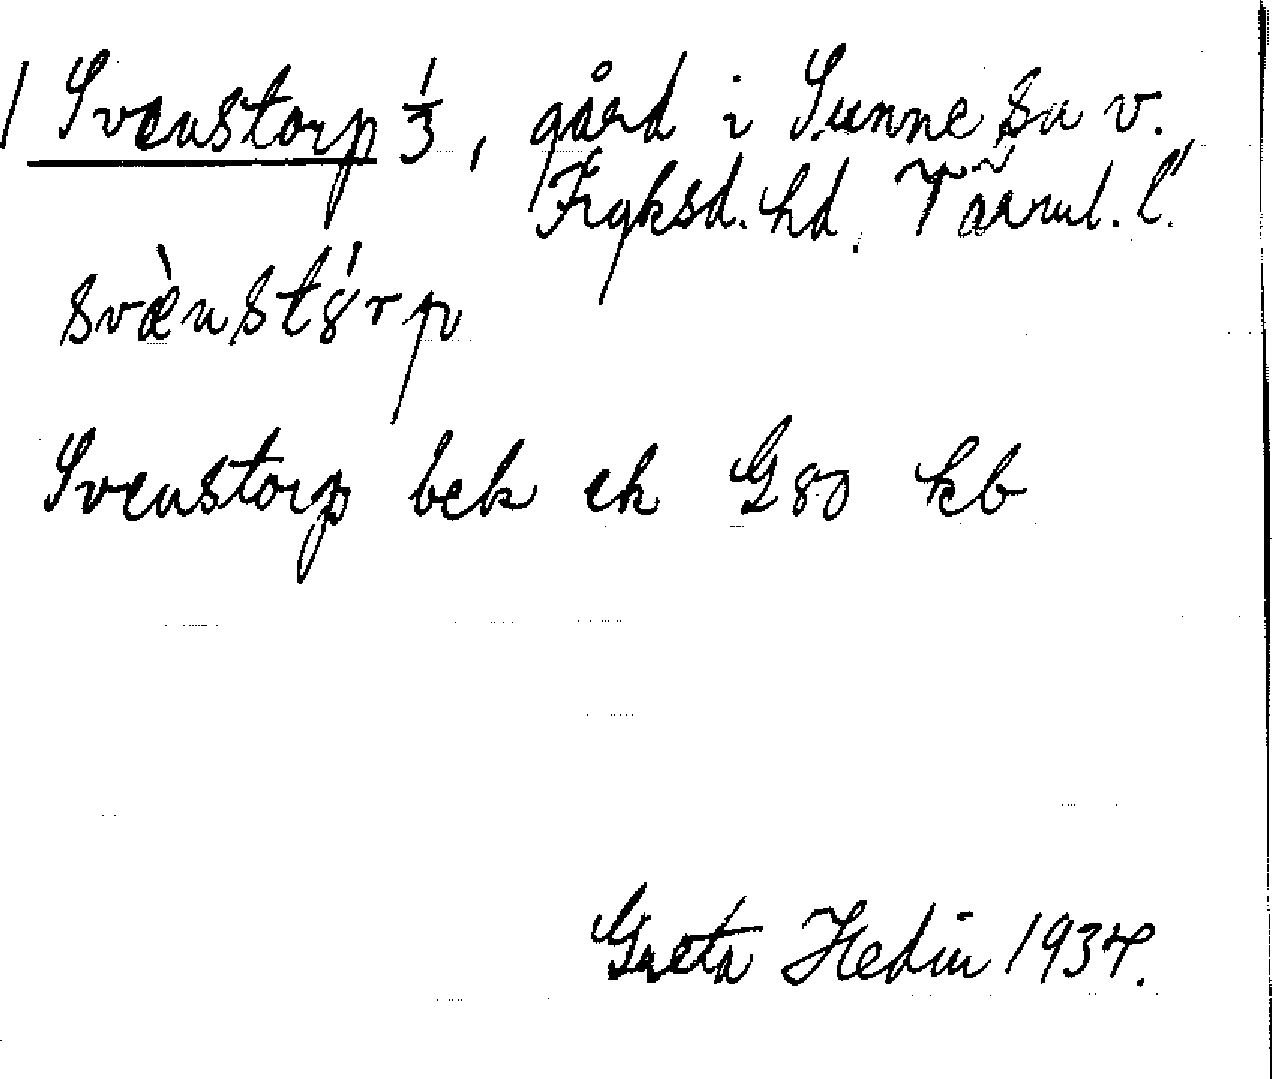 / Svenstorp 1/3, gård i Sunne sn v.
Fryksd. hd. Värml. l.
svæ̀nstór p
Svenstorp bek ek G80 kb
Greta Hedin 1934.